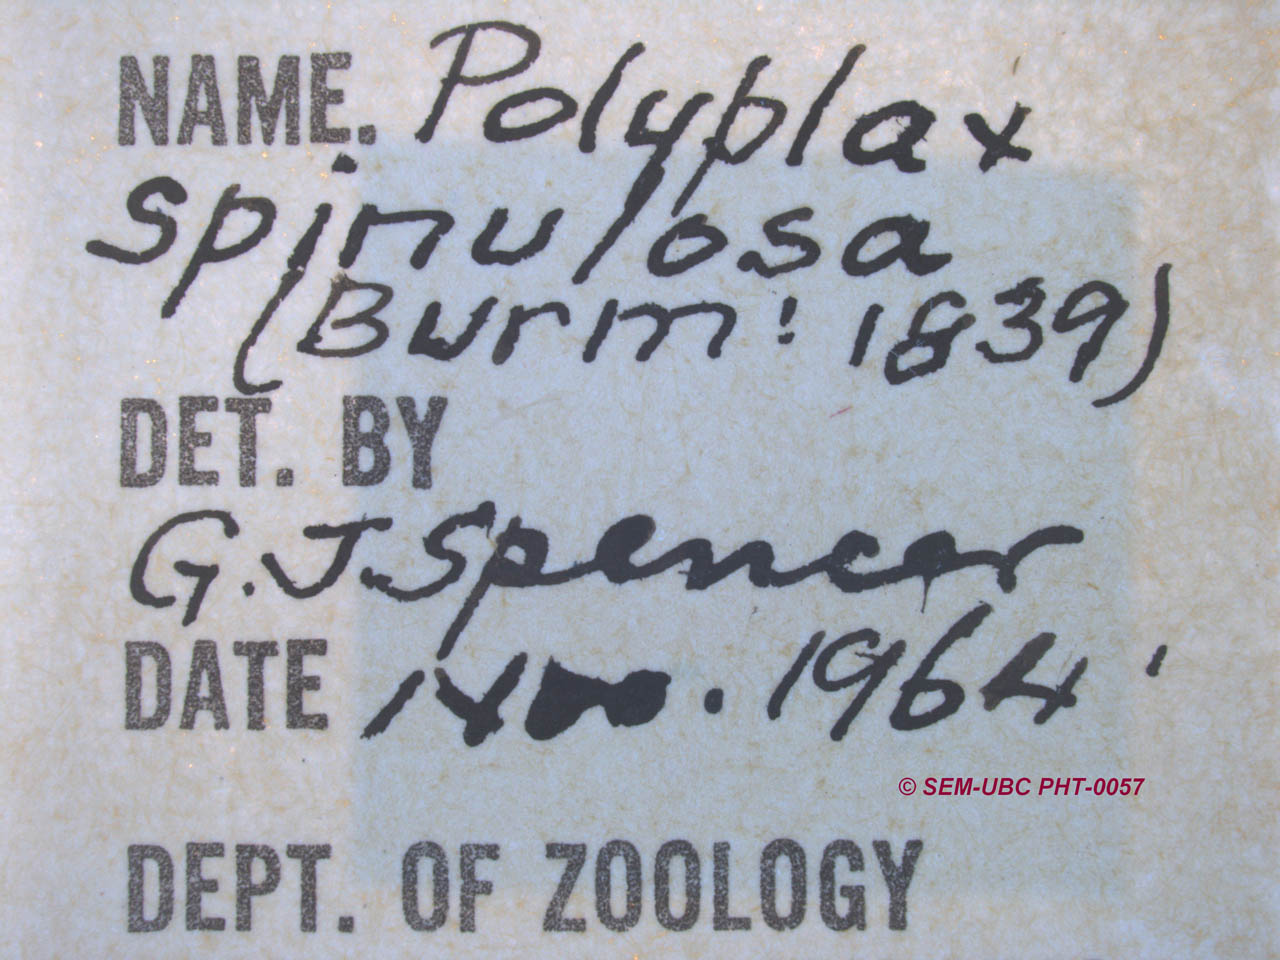 NAME. Polyplax
spinulosa
(Burm: 1839)
DET. BY
G. J. Spencer
DATE Nov. 1964
© SEM-UBC PHT-0057
DEPT. OF ZOOLOGY